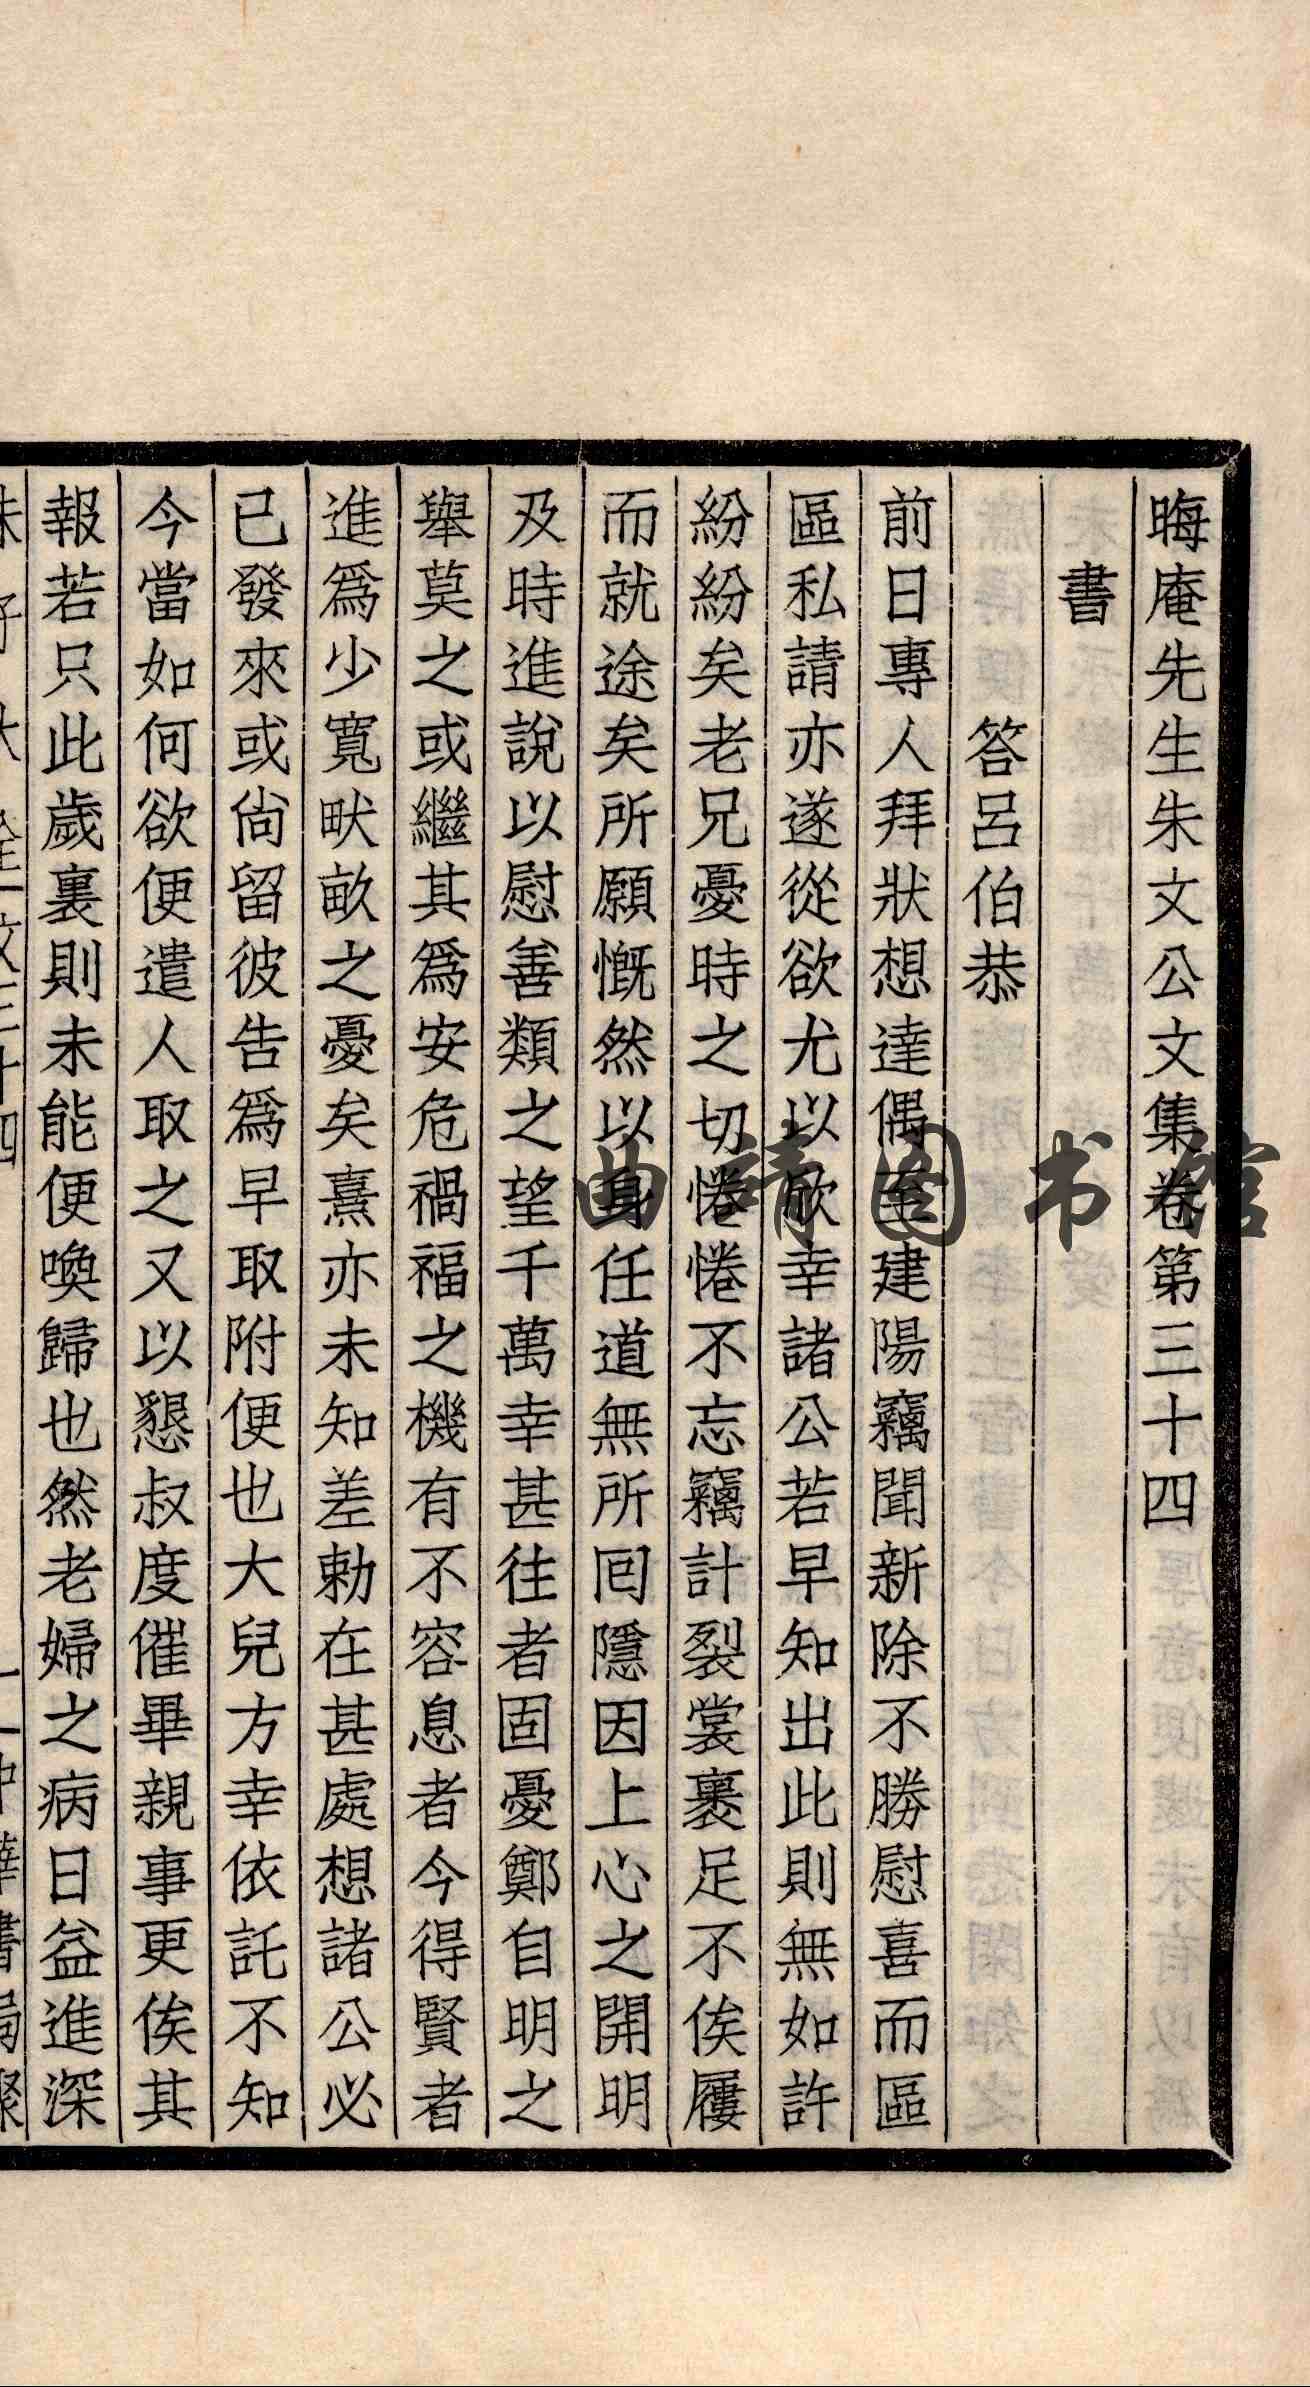 晦庵先生朱文公文集卷第三十四
書
答呂伯恭
前日專人拜狀想達偶至建陽竊聞新除不勝慰喜而區
區私請亦遂從欲尤以欣幸諸公若早知出此則無如許
紛紛矣老兄憂時之切惓惓不忘竊計裂裳裹足不俟屨
而就途矣所願慨然以身任道無所回隱因上心之開明
及時進說以慰善類之望千萬幸甚往者固憂鄭自明之
舉莫之或繼其為安危禍福之機有不容息者今得賢者
進爲少寬畎畝之憂矣熹亦未知差勑在甚處想諸公必
已發來或尙留彼告爲早取附便也大兒方幸依託不知
今當如何欲便遣人取之又以懇叔度催畢親事更俟其
報若只此歲裏則未能便喚歸也然老婦之病日益進深
朱子大全文三十四
中華書局聚
曲靖图书馆